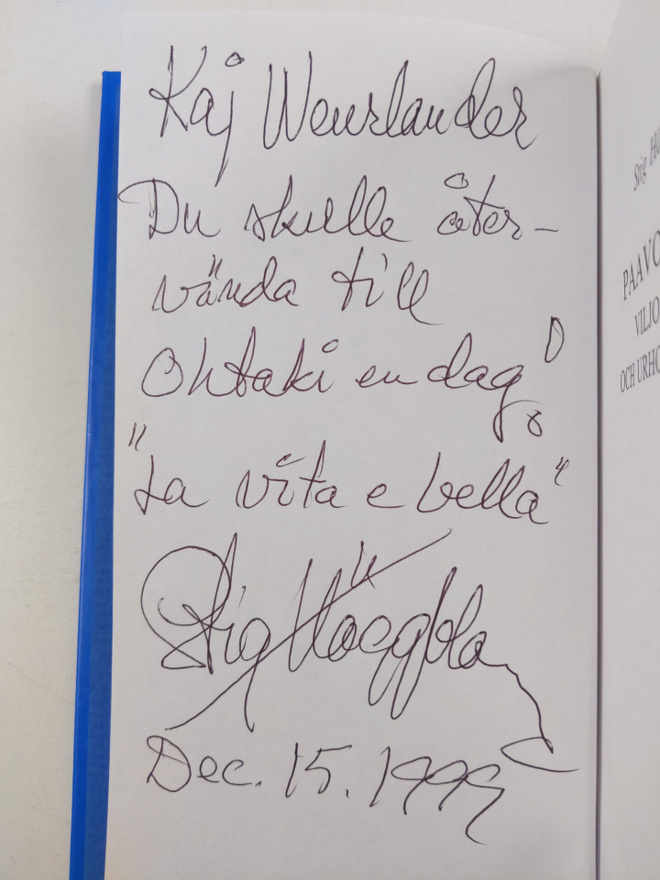 Kaj Wenrlander
Du skulle åter-
vända till
Ohtaki en dag!
"La vita e bella"
Stig Häggblom
Dec. 15. 1999
Stig
PAAVO
VILJO
OCH URHO